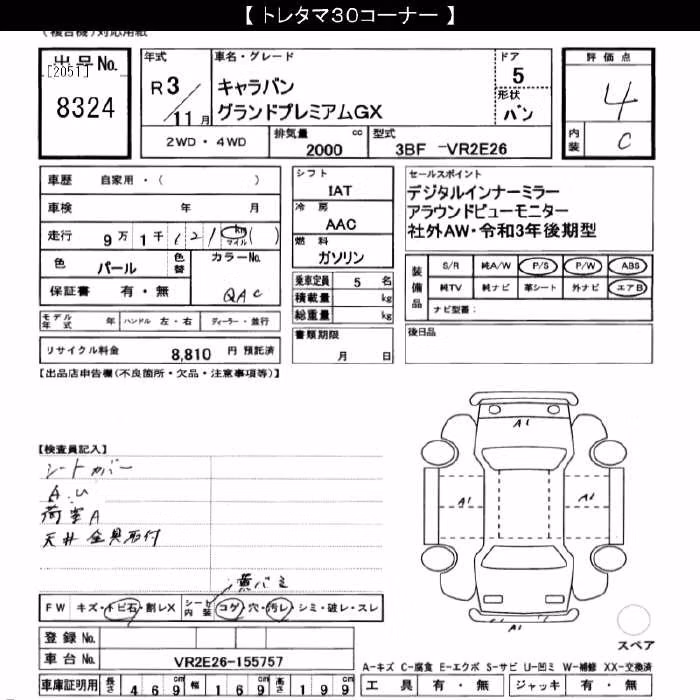 【 トレタマ30コーナー 】
(複合名)対応用紙
出品No.
[2051]
8324
年式
R 3 / 11 月
車名・グレード
キャラバン
グランドプレミアムGX
ドア
5
形状
バン
評価点
4
内装
C
2WD・4WD
排気量 cc
2000
型式
3BF -VR2E26
車歴 自家用・( )
車検 年 月
走行 9万 1千 1 2 1 km マイル ( )
色 パール 色替
カラーNo.
QAC
保証書 有・無
モデル年式 年 ハンドル 左・右 ディーラー・並行
リサイクル料金 8,810 円 預託済
シフト
IAT
冷房
AAC
燃料
ガソリン
乗車定員 5 名
積載量 kg
総重量 kg
書類期限
月 日
セールスポイント
デジタルインナーミラー
アラウンドビューモニター
社外AW・令和3年後期型
装備品
S/R 純A/W P/S P/W ABS
純TV 純ナビ 革シート 外ナビ エアB
ナビ型番:
後日品
【出品店申告欄(不良箇所・欠品・注意事項等)】
【検査員記入】
シートカバー
A.U
荷室A
天井 金具取付
A1
A1
A2
A1
スペア
FW キズ・トビ石・割レX
シート内装 コゲ・穴・汚レ・シミ・破レ・スレ
登録No.
車台No. VR2E26-155757
A-キズ C-腐食 E-エクボ S-サビ U-凹ミ W-補修 XX-交換済
車庫証明用 長さ 469cm 幅 169cm 高さ 199cm
工具 有・無 ジャッキ 有・無